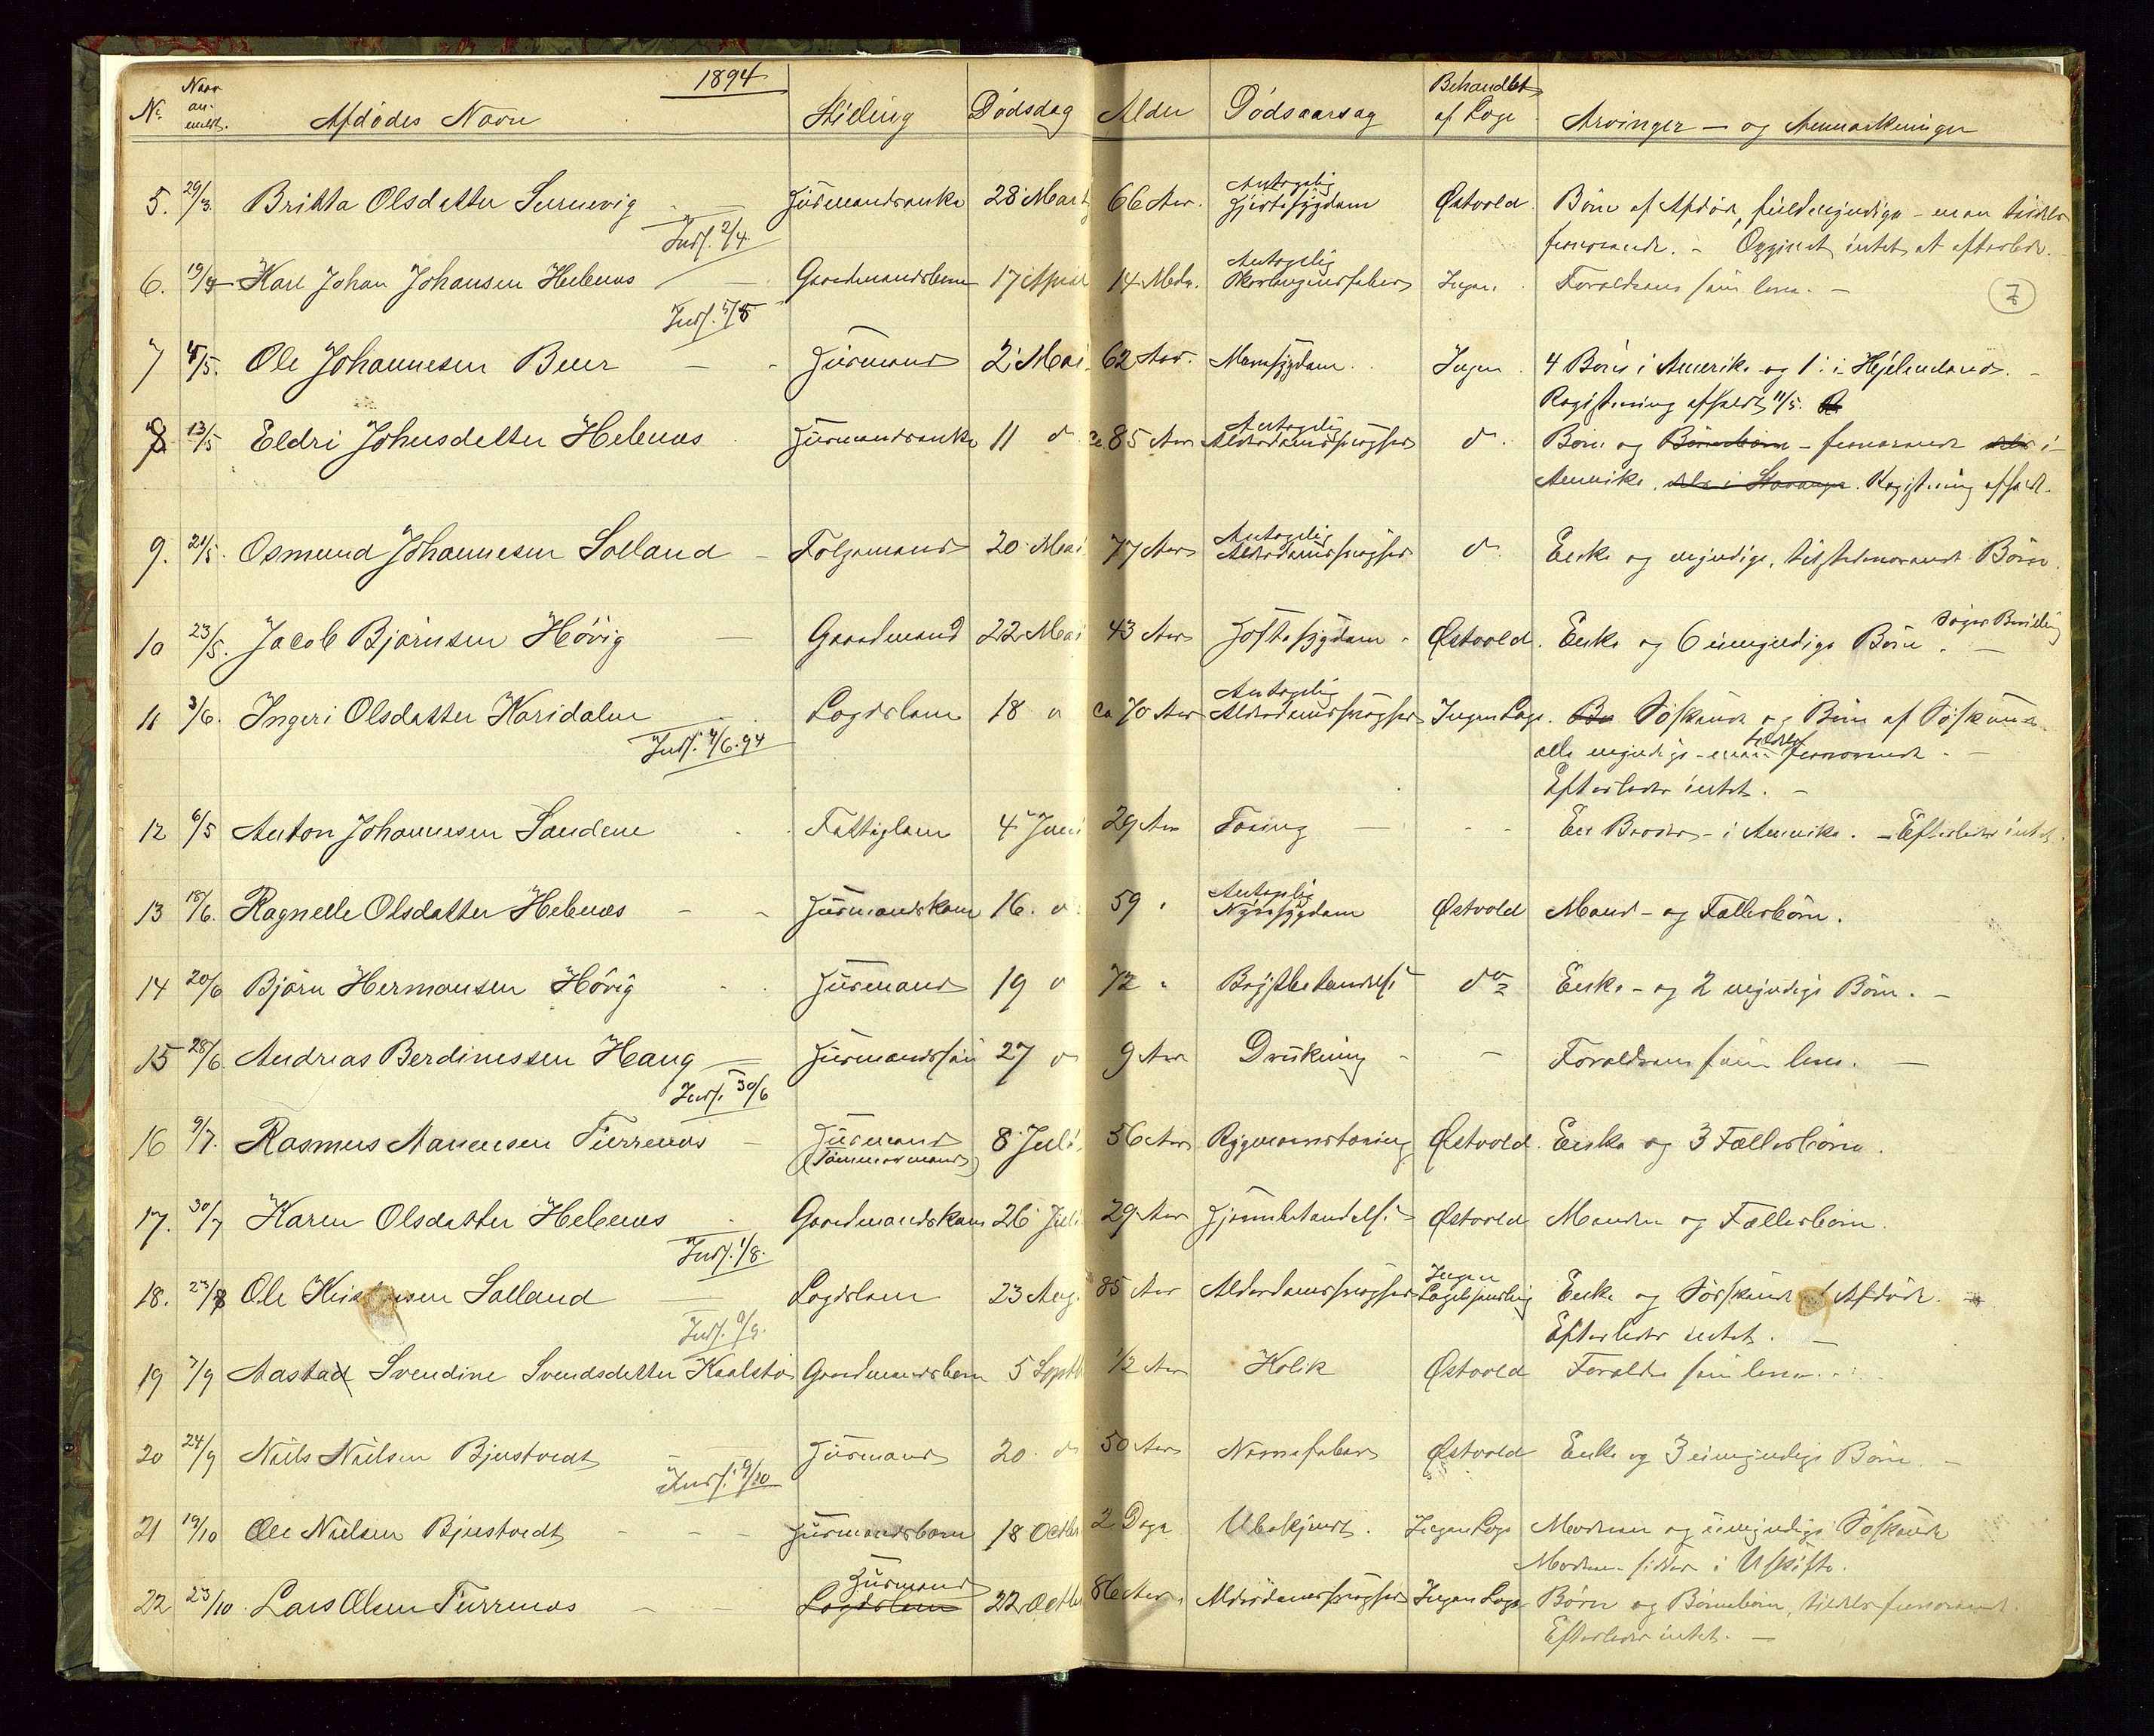 1894
No. Naar anmeldt. Afdødes Navn Stilling Dødsdag Alder Dødsaarsag Behandlet af Læge Arvinger – og Anmærkninger
5. 29/3. Britta Olsdatter Sunnevig Huusmandsenke 28 Marts 66 Aar. Antagelig Hjertesygdom Østvold Børn af Afdøde, fuldmyndige – men tildels
Indf. 2/4. fraværende. – Opgivet intet at efterlade.
6. 19/4 Karl Johan Johansen Helenæs Gaardmandsbarn 17 April 14 Mdr. Antagelig Skarlagensfeber Ingen. Forældrene som leve. –
Indf. 5/5 7
7 4/5. Ole Johannesen Buer Huusmand 2 Mai 62 Aar. Mavesygdom. Ingen 4 Børn i Amerika og 1 i Hjelmeland. –
Registrering afholdt 11/5.
8 13/5 Eldri Johnsdatter Helenæs Huusmandsenke 11 do ca. 85 Aar Antagelig Alderdomssvaghed do. Børn og Børnebørn – fraværende dels i
Amerika. dels i Stavanger. Registrering afholdt.
9. 21/5. Osmund Johannesen Solland Folgemand 20 Mai 77 Aar Antagelig Alderdomssvaghed do Enke og myndige, tilstedeværende Børn.
10 23/5. Jacob Bjørnsen Høvig Gaardmand 22 Mai 43 Aar Hoftesygdom Østvold. Enke og 6 umyndige Børn. – søger Bevilling
11 3/6. Ingeri Olsdatter Karidalen Lægdslem 18 do ca 70 Aar Antagelig Alderdomssvaghed Ingen Læge. Søskende og Børn af Søskende
Indf. 4/6.94 alle myndige – men tildels fraværende. –
Efterlader intet. –
12 6/5 Anton Johannesen Sandene Fattiglem 4 Juni 29 Aar Tæring – – – En Broder – i Amerika. – Efterlader intet.
13 18/6. Ragnelle Olsdatter Helenæs Huusmandskone 16. do 59 " Antagelig Nyresygdom Østvold Mand – og Fællesbørn.
14 20/6 Bjørn Hermansen Høvig Huusmand 19 do 72 " Brystbetændelse do Enke – og 2 myndige Børn. –
15 28/6. Andreas Berdinessen Haug Huusmandssøn 27 do 9 Aar Drukning – – Forældrene som leve. –
Indf. 30/6
16 9/7. Rasmus Monsensen Turrenæs Huusmand (Tømmermand) 8 Juli. 56 Aar Rygmarvstæring Østvold Enke og 3 Fællesbørn.
17. 30/7 Karen Olsdatter Helenæs Gaardmandskone 26 Juli 29 Aar Hjernebetændelse Østvold Manden og Fællesbørn.
Indf. 1/8.
18. 23/8 Ole Solland Lægdslem 23 Aug. 85 Aar Alderdomssvaghed Ingen Lægebehandling Enke og Søskende Afdøde.
Indf. 6/9. Efterlader intet. –
19 7/9 Aastad Svendine Svendsdatter Kaalstø Gaardmandsbarn 5 Septb 1/2 Aar Kolik Østvold Forældre som leve.
20 24/9 Niels Nielsen Bjustvedt Huusmand 20. do 50 Aar Nervefeber Østvold Enke og 3 umyndige Børn. –
Indf. 9/10
21 19/10 Ole Nielsen Bjustvedt Huusmandsbarn 18 Octbr 2 Dage Ubekjendt. Ingen Læge Moderen og umyndige Søskende
Moderen sidder i Uskifte.
22 23/10. Lars Olsen Turrenæs Huusmand Lægdslem 22 Octbr 86 Aar. Alderdomssvaghed Ingen Læge Børn og Børnebørn, tildels fraværende.
Efterlader intet. –